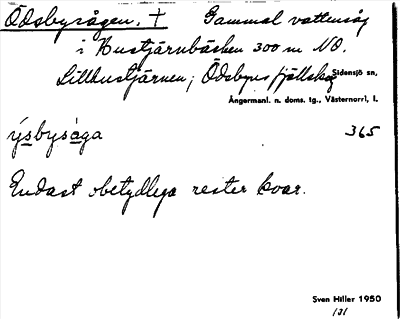 Ödsbysågen. † Gammal vattensåg
i Hustjärnbäcken 300 m NO.
Lillhustjärnen; Ödsbyns fjällskog Sidensjö sn,
Ångermanl. n. doms. tg., Västernorrl, l.
ýsbysåga 365
Endast obetydliga rester kvar.
Sven Hiller 1950
131